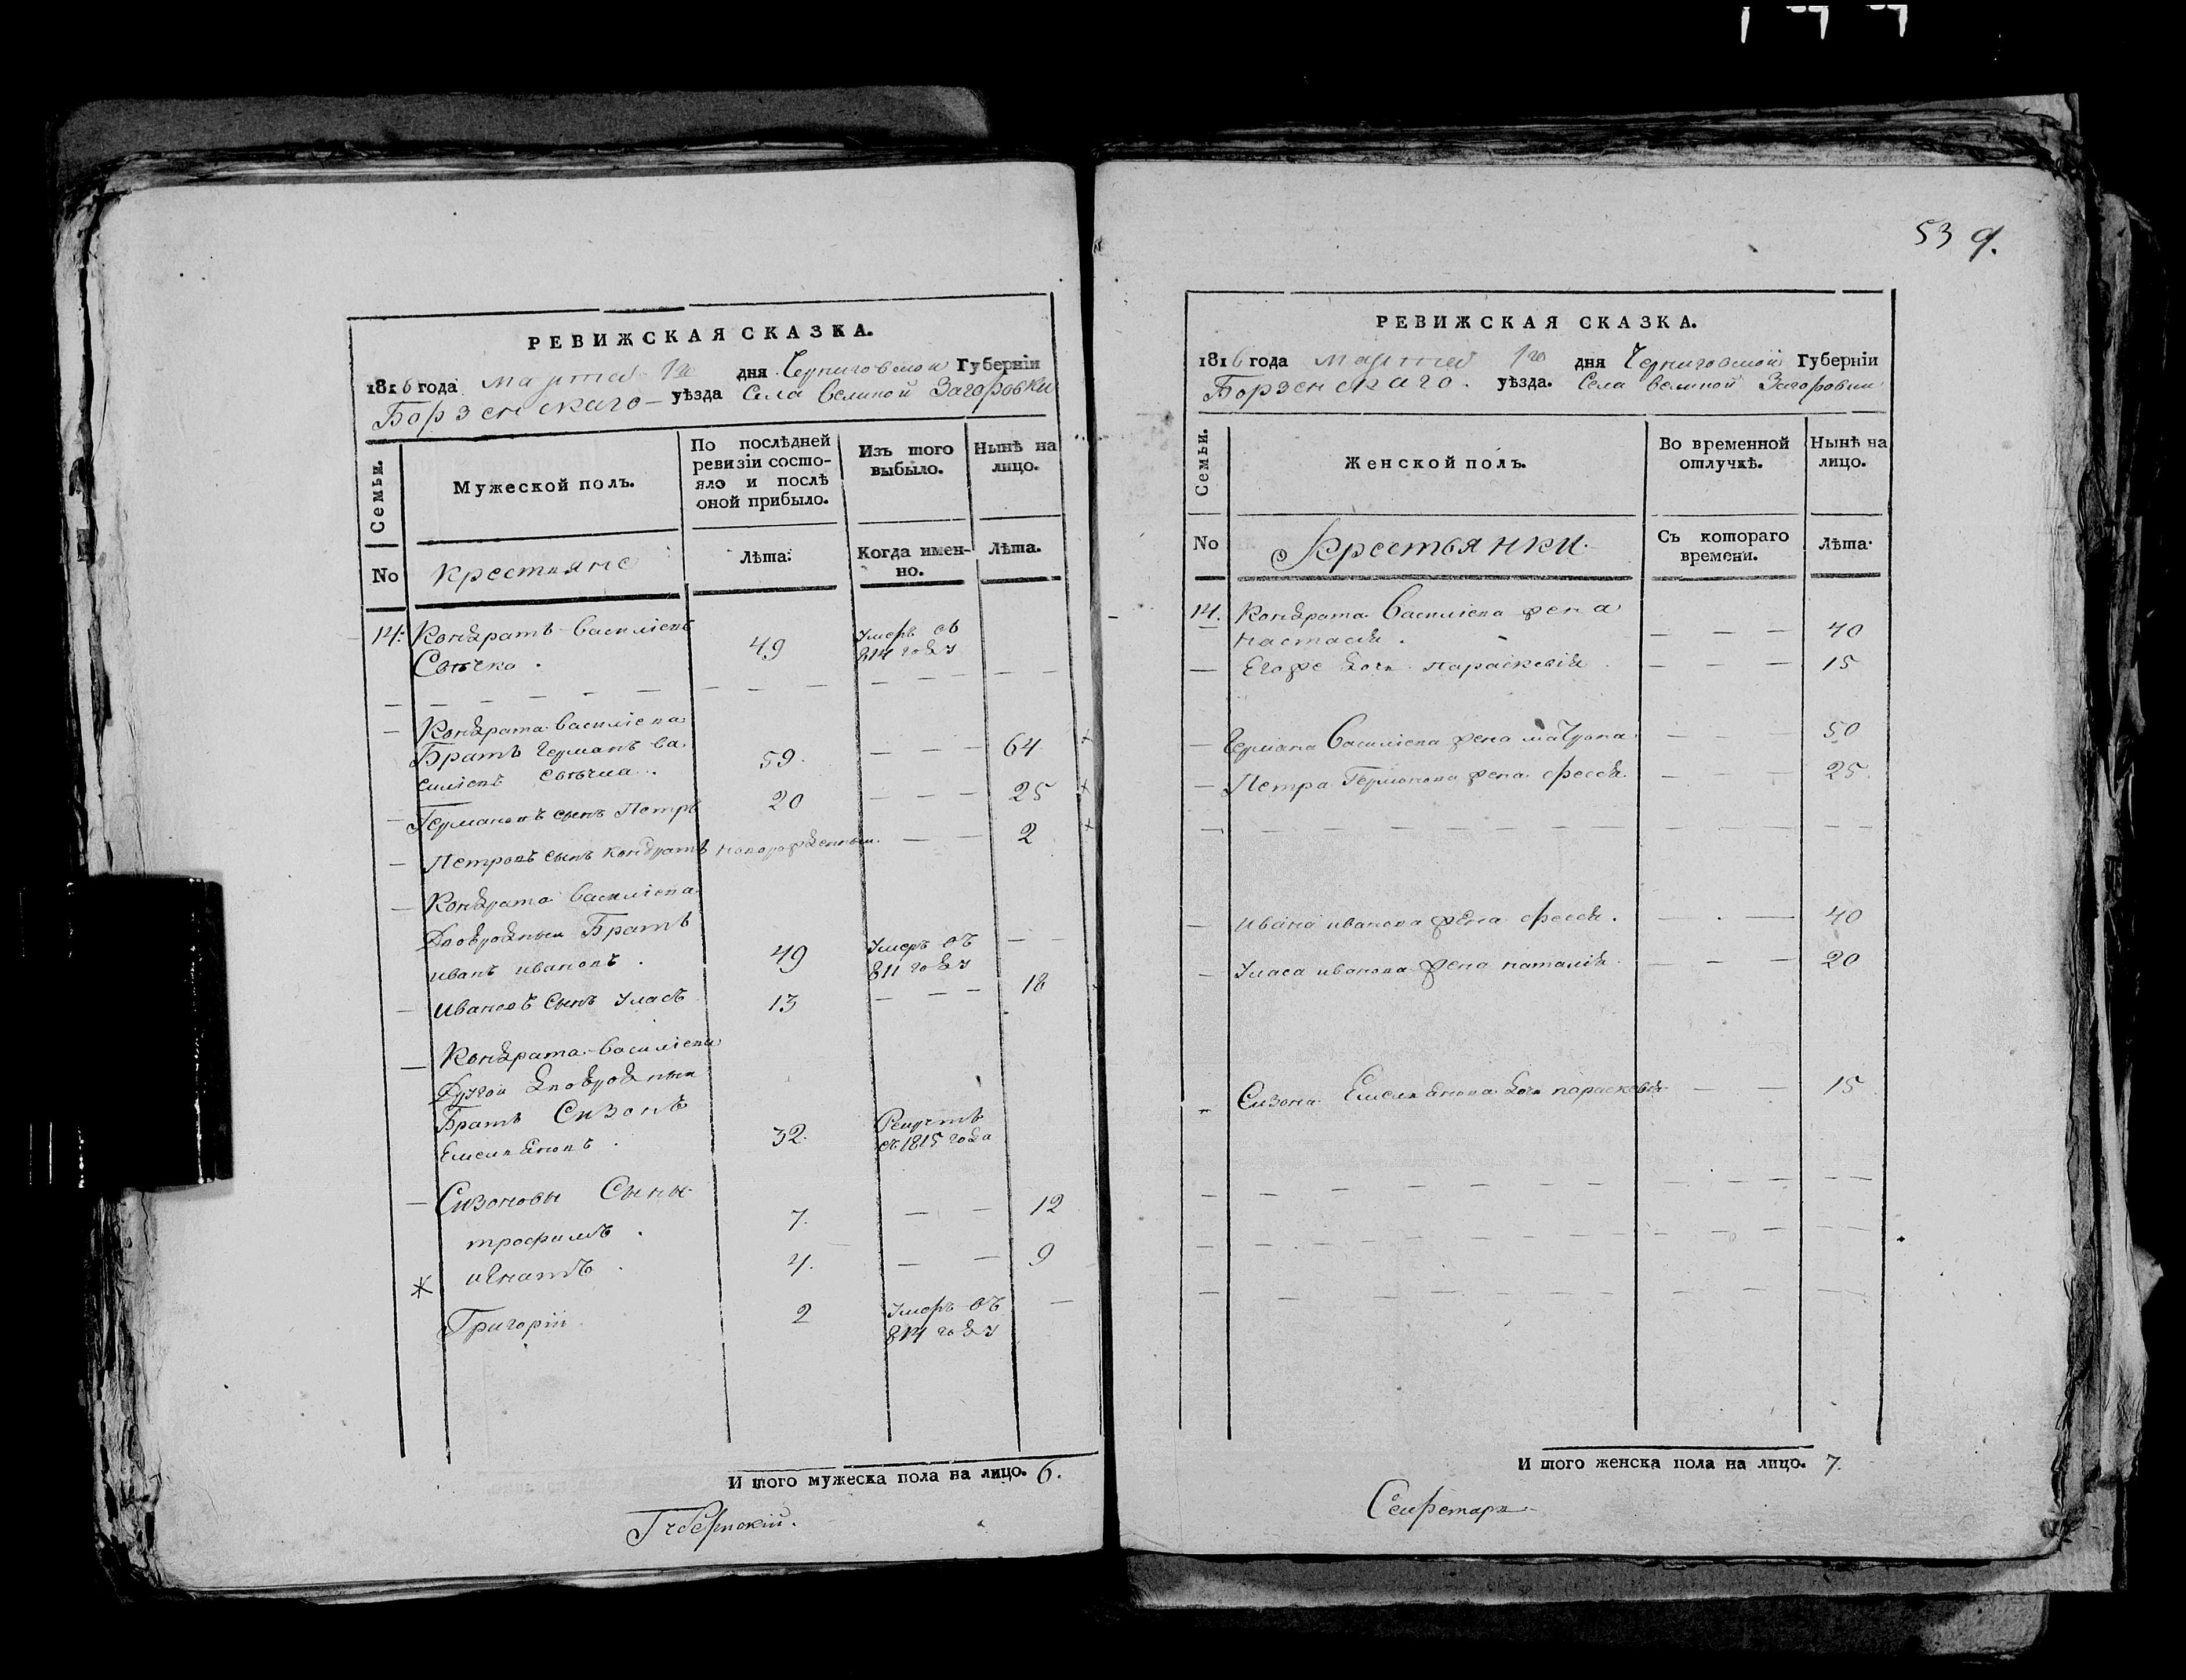 53 9.
РЕВИЖСКАЯ СКАЗКА.
1816 года марта 1го дня Черниговской Губерніи
Борзенскаго уѣзда Села Великой Загоровки
Семьи.
Мужеской полъ.
По послѣдней ревизіи состо-
яло и послѣ оной прибыло.
Изъ того выбыло.
Нынѣ на лицо.
No
крестьяне
Лѣта.
Когда имен-
но.
Лѣта.
14. Кондратъ Василіевъ 49 Умеръ въ
814 году
— — — — — — — — — — — — —
— Кондрата Василіева
Братъ Германъ Ва
силіевъ 59. — — — 64
— Германовъ сынъ Петръ 20 — — — 25
— Петровъ сынъ Кондратъ новорожденный — — 2
— Кондрата Василіева
Двоюродный Братъ
иванъ ивановъ . 49 Умеръ въ
811 году — —
— Ивановъ Сынъ Уласъ 13 — — — 18
— Кондрата Василіева
Другой двоюродный
Братъ Сизонъ
Емельяновъ . 32. Рекрутъ
съ 1815 года
— Сизоновы Сыны
трофимъ . 7. — — 12
игнатъ . 4. — — 9
Григорій 2 Умеръ въ
814 году —
И того мужеска пола на лицо. 6.
Губернскій.
РЕВИЖСКАЯ СКАЗКА.
1816 года марта 1го дня Черниговской Губерніи
Борзенскаго. уѣзда. Села Великой Загоровки
Семьи.
Женской полъ.
Во временной отлучкѣ.
Нынѣ на лицо.
No
Крестьянки
Съ котораго времени.
Лѣта.
14. Кондрата Василіева жена
настасія . — — — 40
— Егоже дочь параскевія — — — 15
— Германа Василіева жена матрона — — — 50
— Петра Германова жена — — — 25.
— Ивана иванова жена — . — 40
— Уласа иванова жена наталія — — — 20
— Сизона Емельянова дочь параскевія — — 15
И того женска пола на лицо. 7.
Секретарь